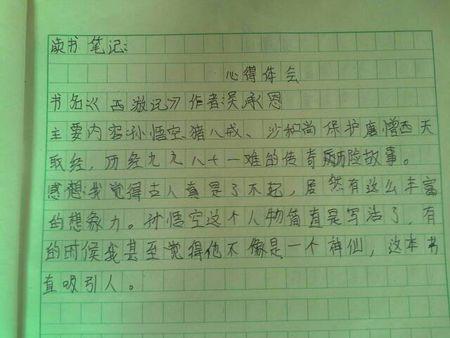 读书笔记：
心得体会
书名《西游记》作者吴承恩
主要内容:孙悟空、猪八戒、沙和尚保护唐憎西天
取经，历经九九八十一难的传奇历险故事。
感想:我觉得古人真是了不起，居然有这么丰富
的想象力。孙悟空这个人物简直是写活了，有
的时候我甚至觉得他不像是一个神仙，这本书
直吸引人。